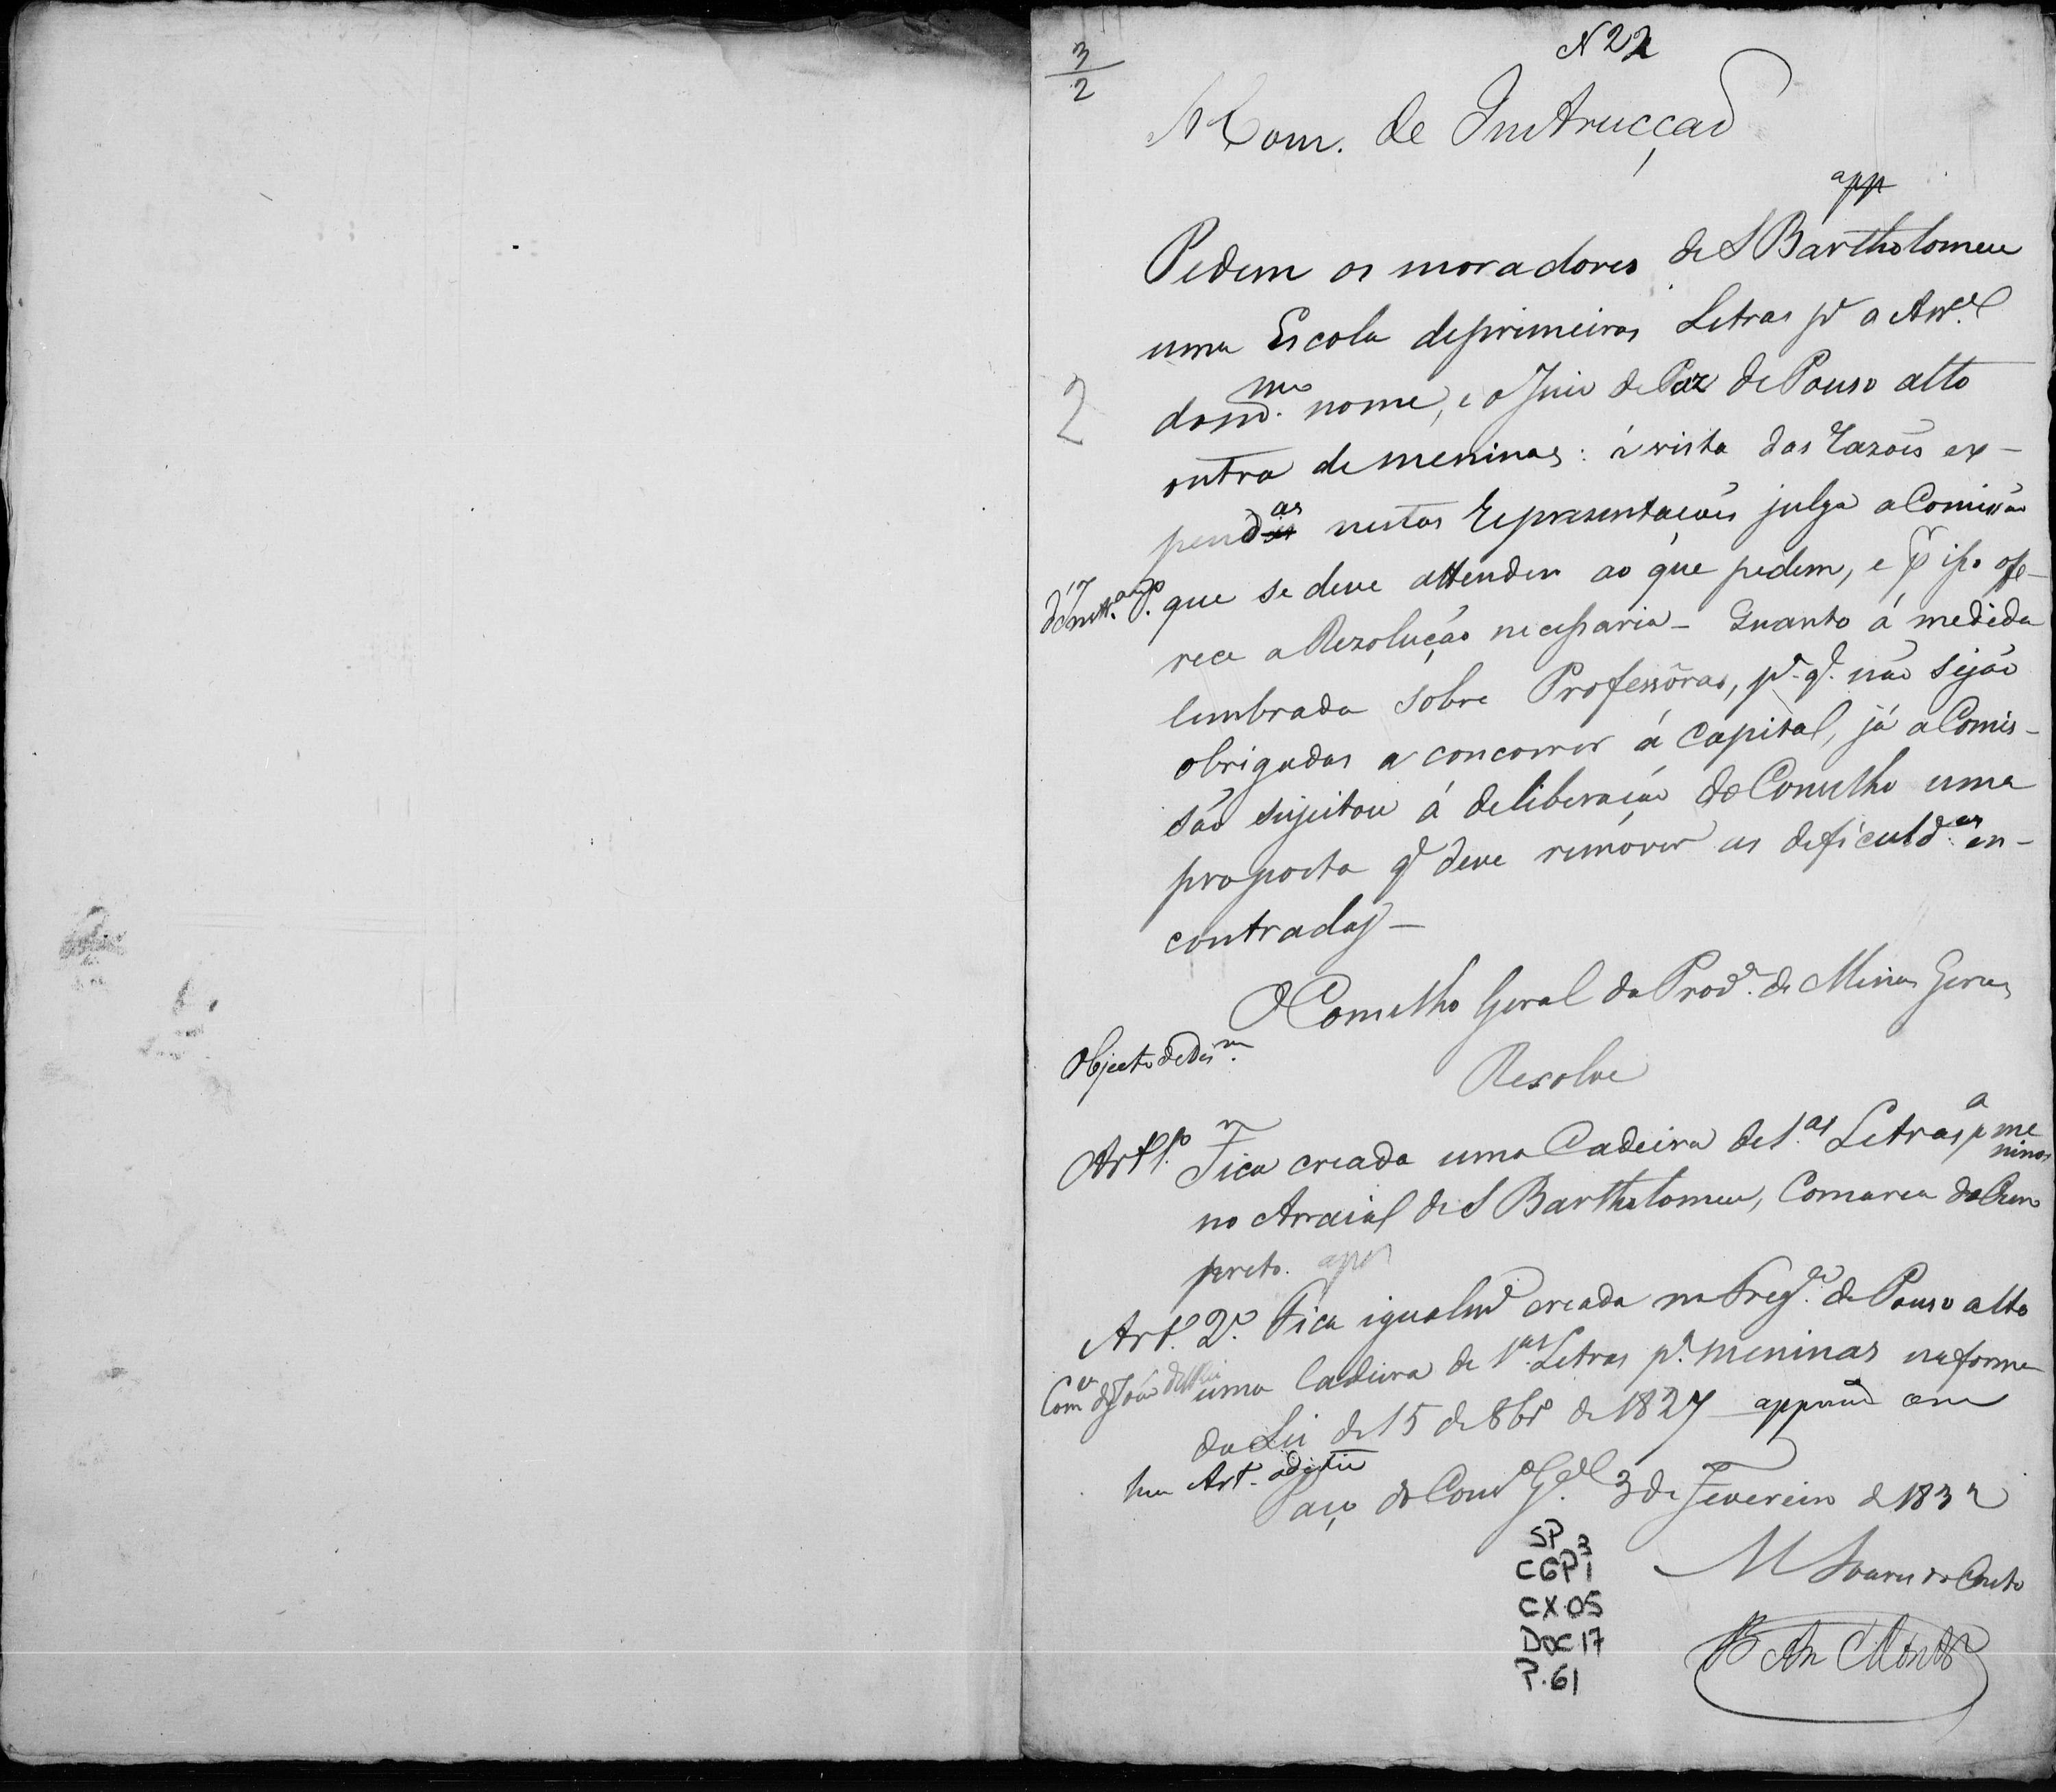 N 22
3
2
A Com. de Instrucção
app
Pedem os moradores de S Bartholomeu
uma Escola de primeiras Letras pª o Arr.al
do m.mo nome, e o Juiz de Paz de Pouso alto
2
outra de meninas: á vista das razões ex-
pendidas nestas representações julga a Comissão
que se deve attender ao que pedem, e pr isso offe-
rece a Rezolução necessaria - Quanto á medida
lembrada sobre Professôras, pª q. não sejão
obrigadas a concorrer á Capital, já a Comis-
são sujeitou á deliberação do Conselho uma
proposta q deve remover as deficuld.es en-
contradas -
O Conselho Geral da Prov.ª de Minas Geraes
Objecto de
Resolve
Art 1.º Fica creada uma Cadeira de 1.as Letras pª meninos
no Arraial de S Bartholomeu, Comarca do Ouro
preto.
Art. 2.º Fica igualm.e creada na Freg.ª de Pouso alto
uma Cadeira de 1.as Letras p.ª meninas na forma
da Lei de 15 de 8br.º de 1827
hum Art. aditivo
Paço do Cons.º G.al 3 de Fevereiro de 1832
M Soares do Couto
SP
CGP 1
CX.05
DOC 17
P.61